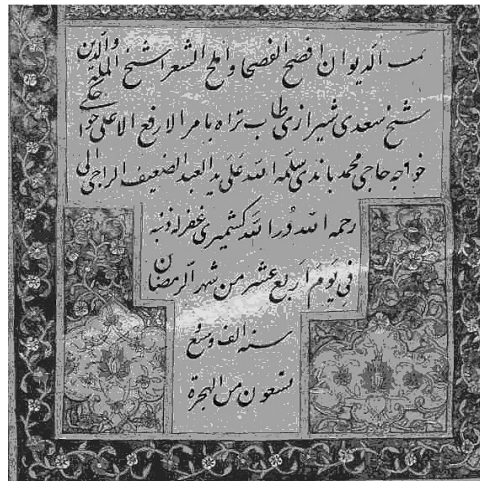 تمت الديوان افصح الفصحا و املح الشعرا شيخ الملة والدين
شيخ سعدى شيرازى طاب ثراه بامر الارفع الاعلى
خواجه حاجى محمد باندى سلمه الله على يد العبد الضعيف الراجى الى
رحمه الله دُر الله كشميرى غفر له ذنبه
فى يوم اربع عشر من شهر الرمضان
سنه الف و تسع
تسعون من الهجرة